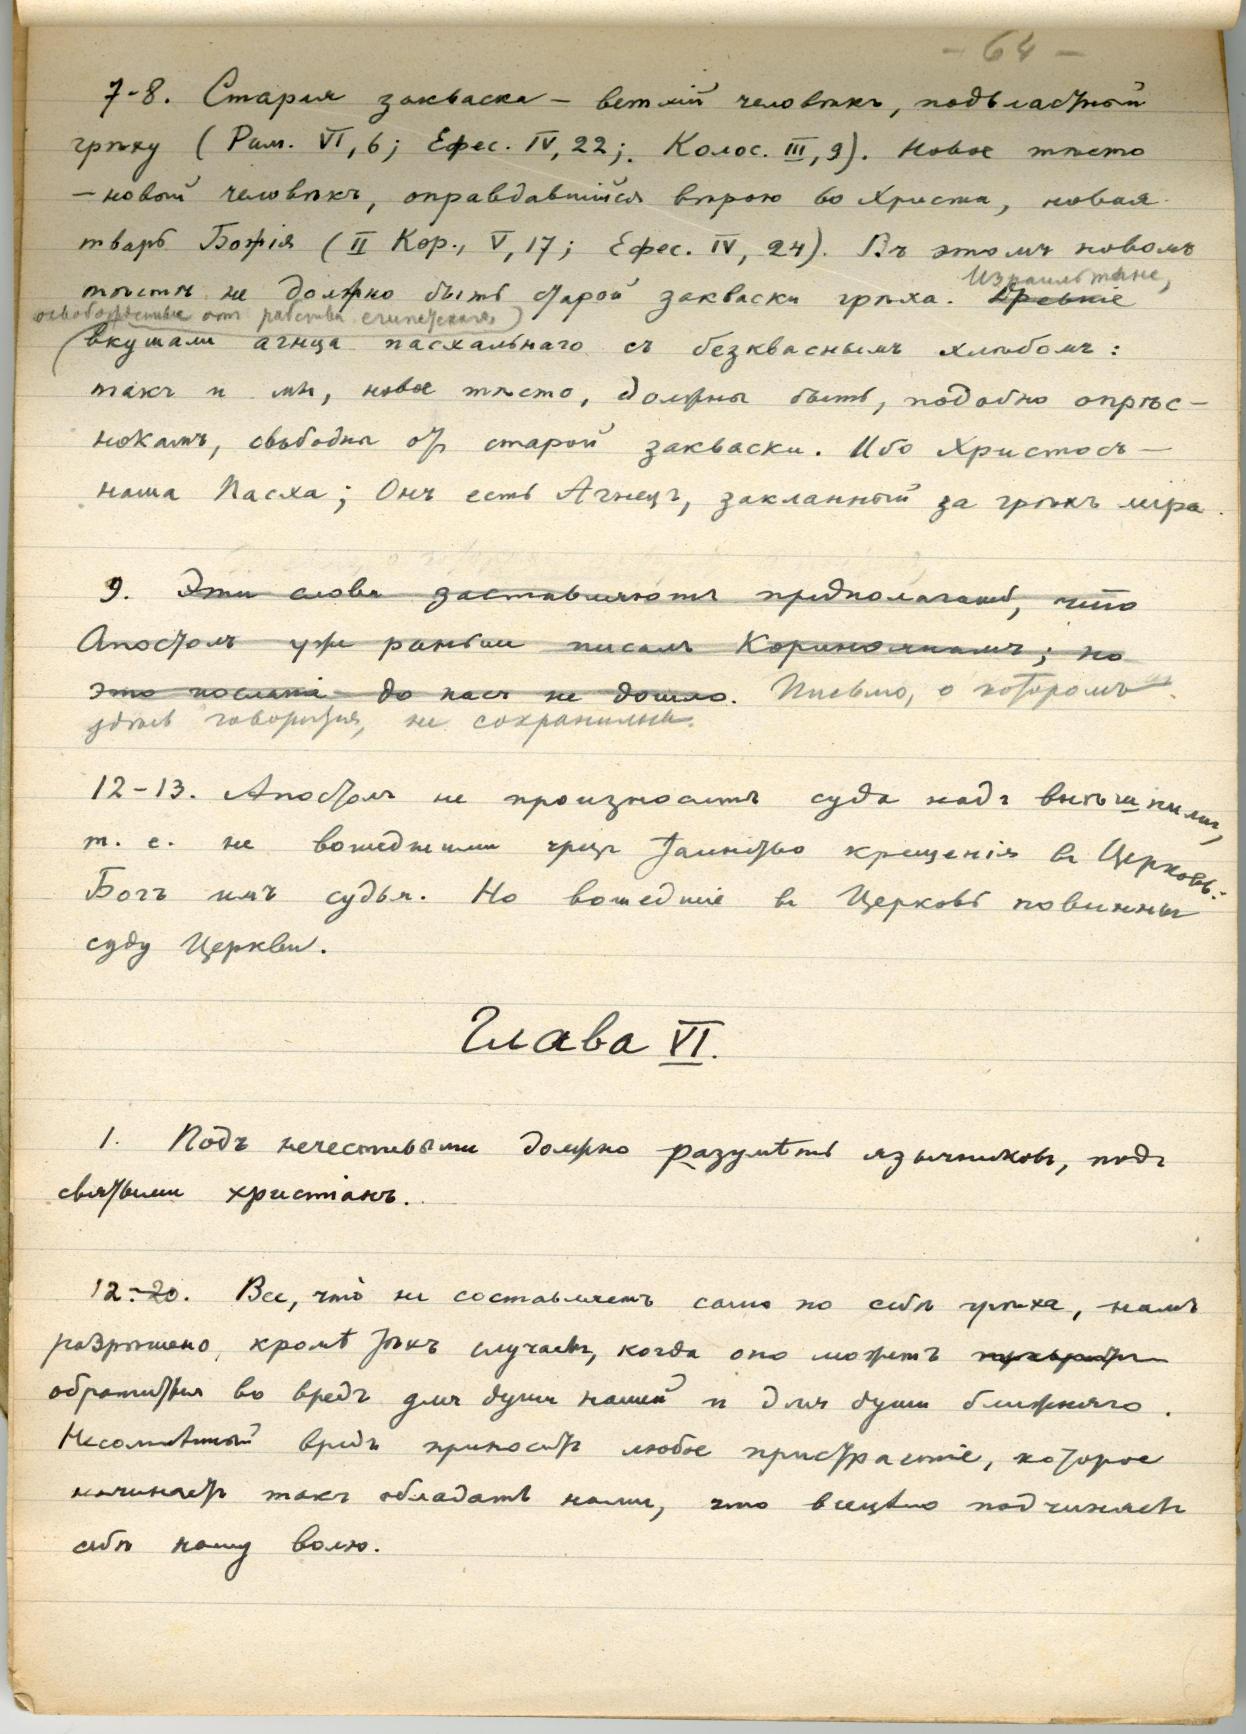 - 64 -
7-8. Старая закваска – ветхій человѣкъ, подвластный
грѣху (Рим. VI, 6; Ефес. IV, 22; Колос. III, 9). Новое тѣсто
– новый человѣкъ, оправдавшійся вѣрою во Христа, новая
тварь Божія (II Кор., V, 17; Ефес. IV, 24). Въ этомъ новомъ
Израильтяне,
тѣстѣ не должно быть старой закваски грѣха. Древніе
освобожденные отъ рабства египетскаго,
вкушали агнца пасхальнаго съ безкваснымъ хлѣбомъ:
такъ и мы, новое тѣсто, должны быть, подобно опрѣс-
нокамъ, свободны отъ старой закваски. Ибо Христосъ –
наша Пасха; Онъ есть Агнецъ, закланный за грѣхъ міра.
9. Эти слова заставляютъ предполагать, что
Апостолъ уже раньше писалъ Коринѳянамъ; но
это посланіе до насъ не дошло. Письмо, о которомъ
здѣсь говорится, не сохранилось.
12-13. Апостолъ не произноситъ суда надъ внѣшними,
т. е. не вошедшими чрезъ Таинство крещенія въ Церковь:
Богъ имъ судья. Но вошедшіе въ Церковь повинны
суду Церкви.
Глава VI.
1. Подъ нечестивыми должно разумѣть язычниковъ, подъ
святыми христіанъ.
12-20. Все, что не составляетъ само по себѣ грѣха, намъ
разрѣшено, кромѣ тѣхъ случаевъ, когда оно можетъ
обратиться во вредъ для души нашей и для души ближняго.
Несомнѣнный вредъ приноситъ любое пристрастіе, которое
начинаетъ такъ обладать нами, что всецѣло подчиняетъ
себѣ нашу волю.